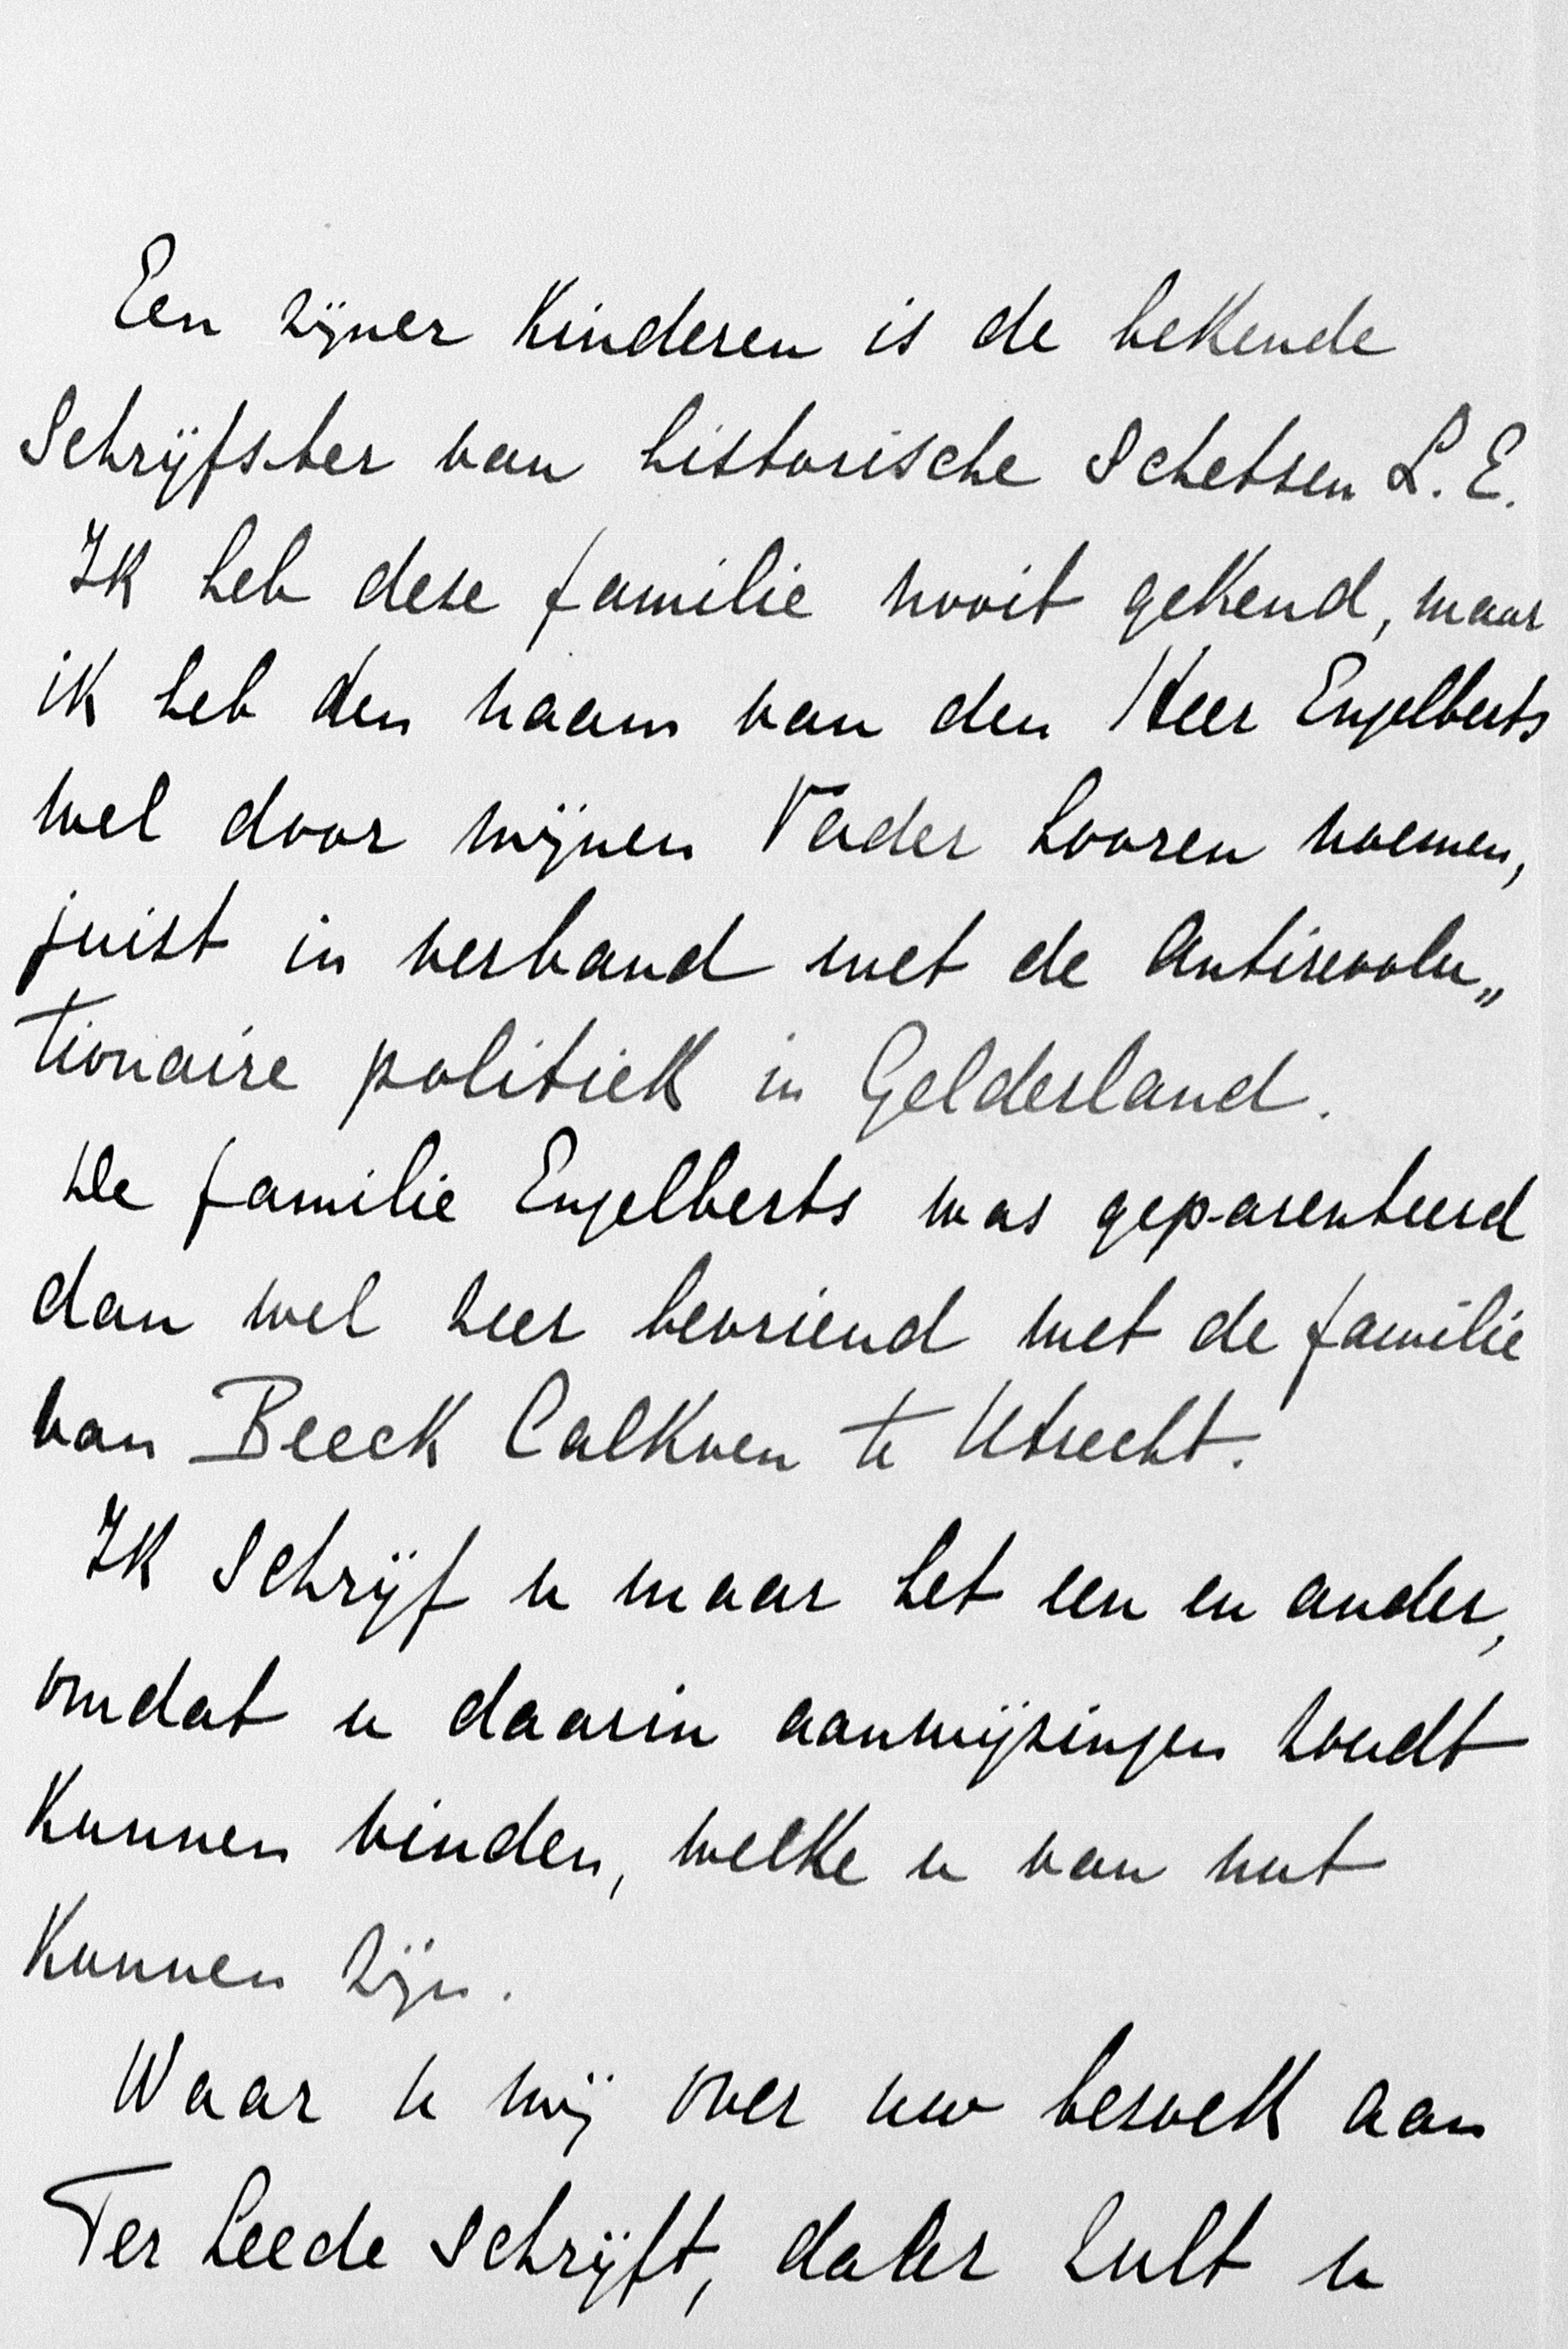 Een zijner Kinderen is de bekende
Schrijfster van historische Schetsen L. E.
Ik heb deze familie nooit gekend, maar
ik heb den naam van den Heer Engelberts
wel door mijnen Vader hooren noemen,
juist in verband met de Antirevolu„
tionaire politiek in Gelderland.
De familie Engelberts was geparenteerd
dan wel zeer bevriend met de familie
van Beeck Calkoen te Utrecht.
Ik Schrijf u maar het een en ander,
omdat u daarin aanwijzingen zoudt
Kunnen vinden, welke u van nut
Kunnen zijn.
Waar u mij over uw bezoek aan
Ter Leede Schrijft, daar zult u